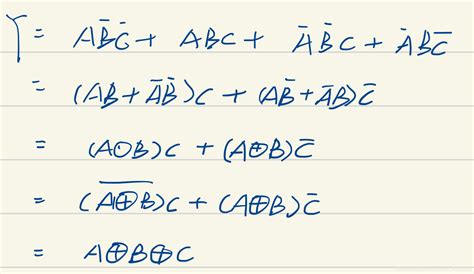 Y = AB̅C̅ + ABC + A̅B̅C + A̅BC̅
= (AB + A̅B̅)C + (AB̅ + A̅B)C̅
= (A⊙B)C + (A⊕B)C̅
= (A⊕B)̅C + (A⊕B)C̅
= A⊕B⊕C